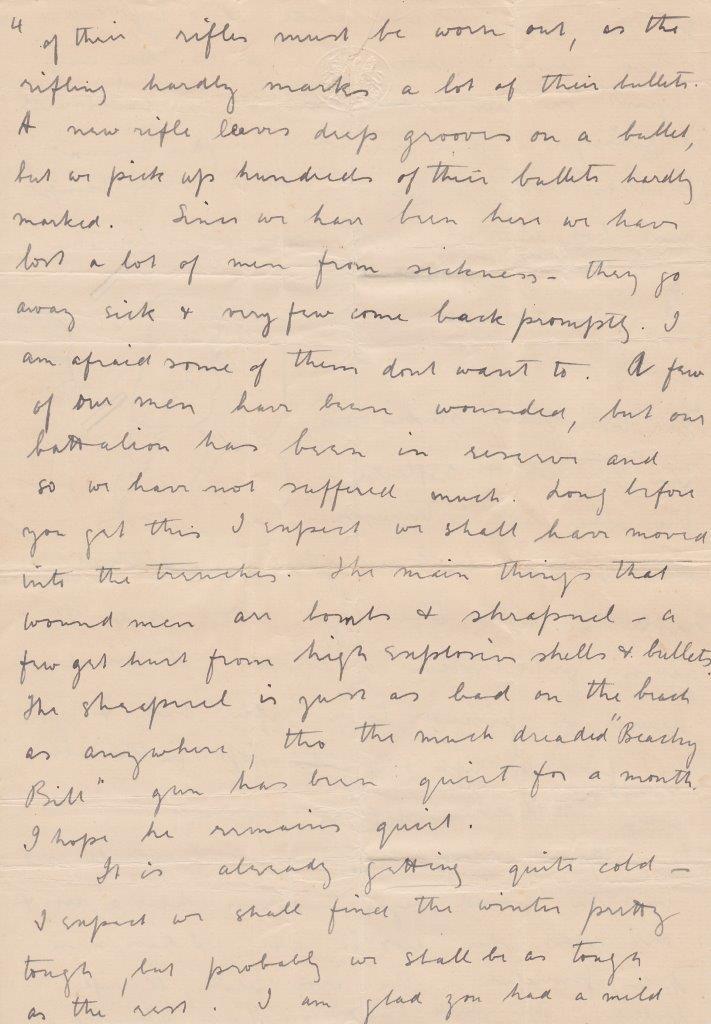 4
of their rifles must be worn out, as the
rifling hardly marks a lot of their bullets.
A new rifle leaves deep grooves on a bullet,
but we pick up hundreds of their bullets hardly
marked. Since we have been here we have
lost a lot of men from sickness - they go
away sick & very few come back promptly. I
am afraid some of them dont want to. A few
of our men have been wounded, but our
battalion has been in reserve and
so we have not suffered much. Long before
you get this I expect we shall have moved
into the trenches. The main things that
wound men are bombs & shrapnel - a
few get hurt from high explosive shells & bullets.
The shrapnel is just as bad on the beach
as anywhere, tho the much dreaded "Beachy
Bill" gun has been quiet for a month.
I hope he remains quiet.
It is already getting quite cold -
I expect we shall find the winter pretty
tough, but probably we shall be as tough
as the rest. I am glad you had a mild